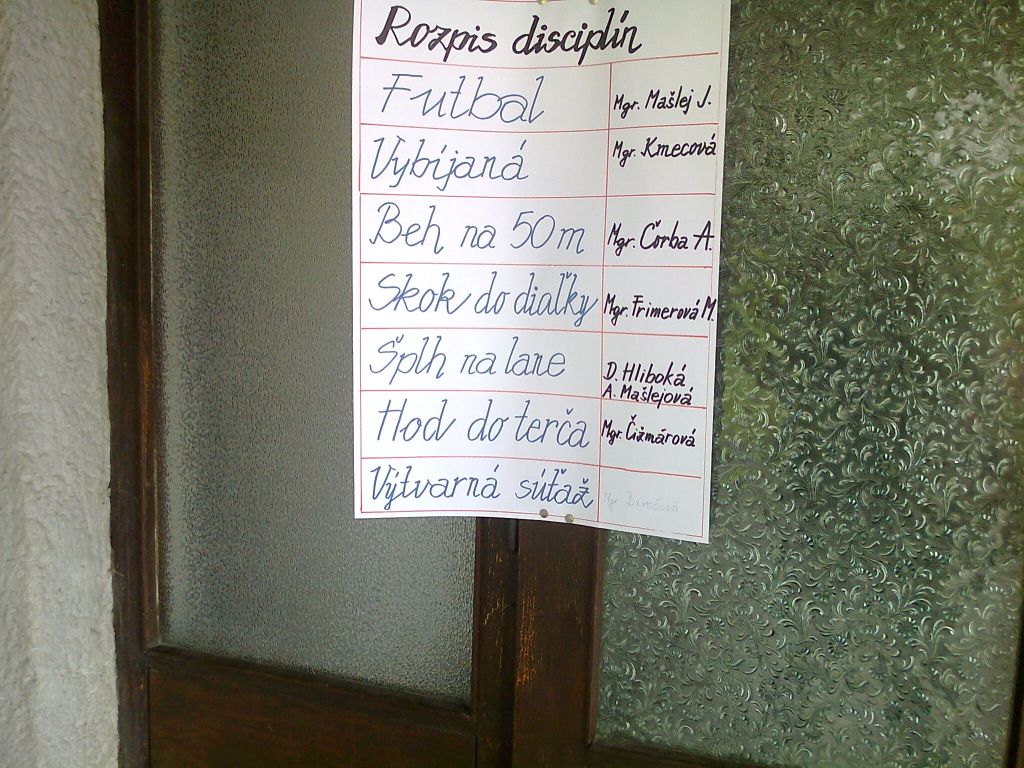 Rozpis disciplín
Futbal Mgr. Mašlej J.
Vybíjaná Mgr. Kmecová
Beh na 50m Mgr. Čorba A.
Skok do diaľky Mgr. Frimerová M.
Šplh na lane D. Hliboká
A. Mašlejová
Hod do terča Mgr. Čižmárová
Výtvarná súťaž Mgr.